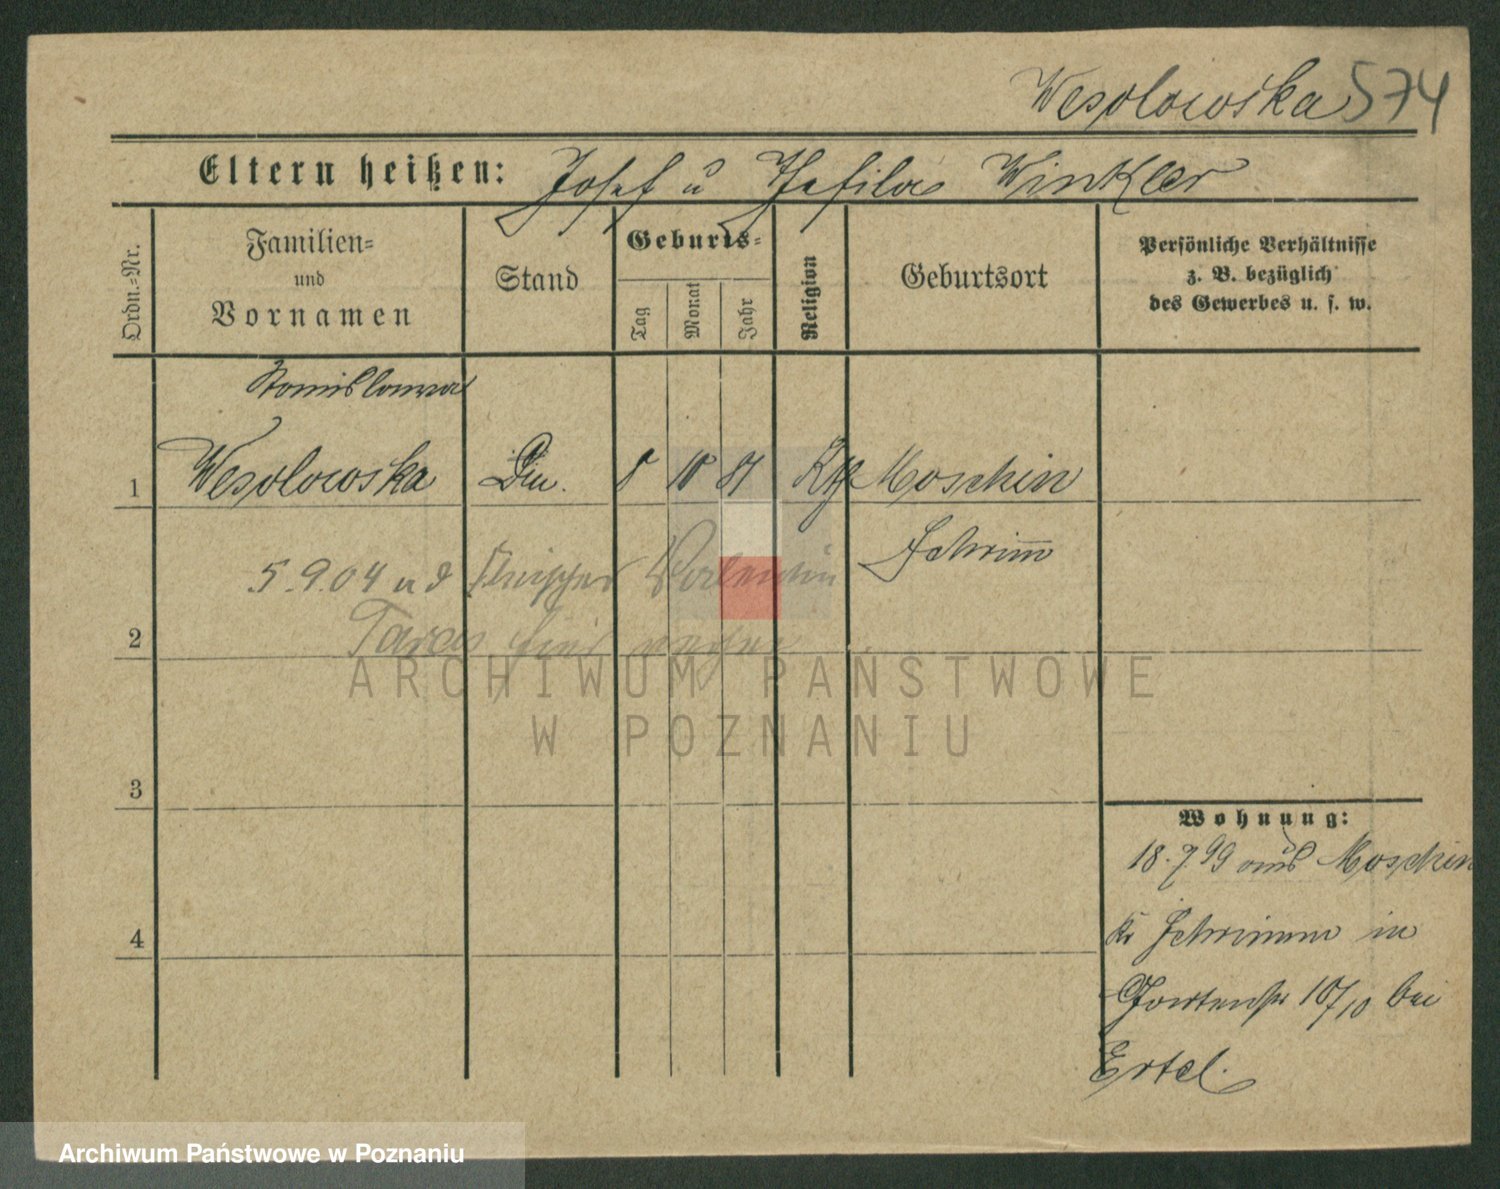 Wesolowska 574
Eltern heißen: Josef u Winkler
Ordn.=Nr.
Familien=
und
Vornamen
Stand
Geburts=
Tag
Monat
Jahr
Religion
Geburtsort
Persönliche Verhältnisse
z. B. bezüglich
des Gewerbes u. s. w.
Stanislawa
1 Wesolowska Din. 8 10 81 Kth Moschin
Schrim̅
5.9.04 Valentin
2
ARCHIWUM PAŃSTWOWE
W POZNANIU
3
Wohnung:
18.7.99 aus Moschin
4
Kr Schrimm in
Gartenstr 10/10 bei
Ertel.
Archiwum Państwowe w Poznaniu